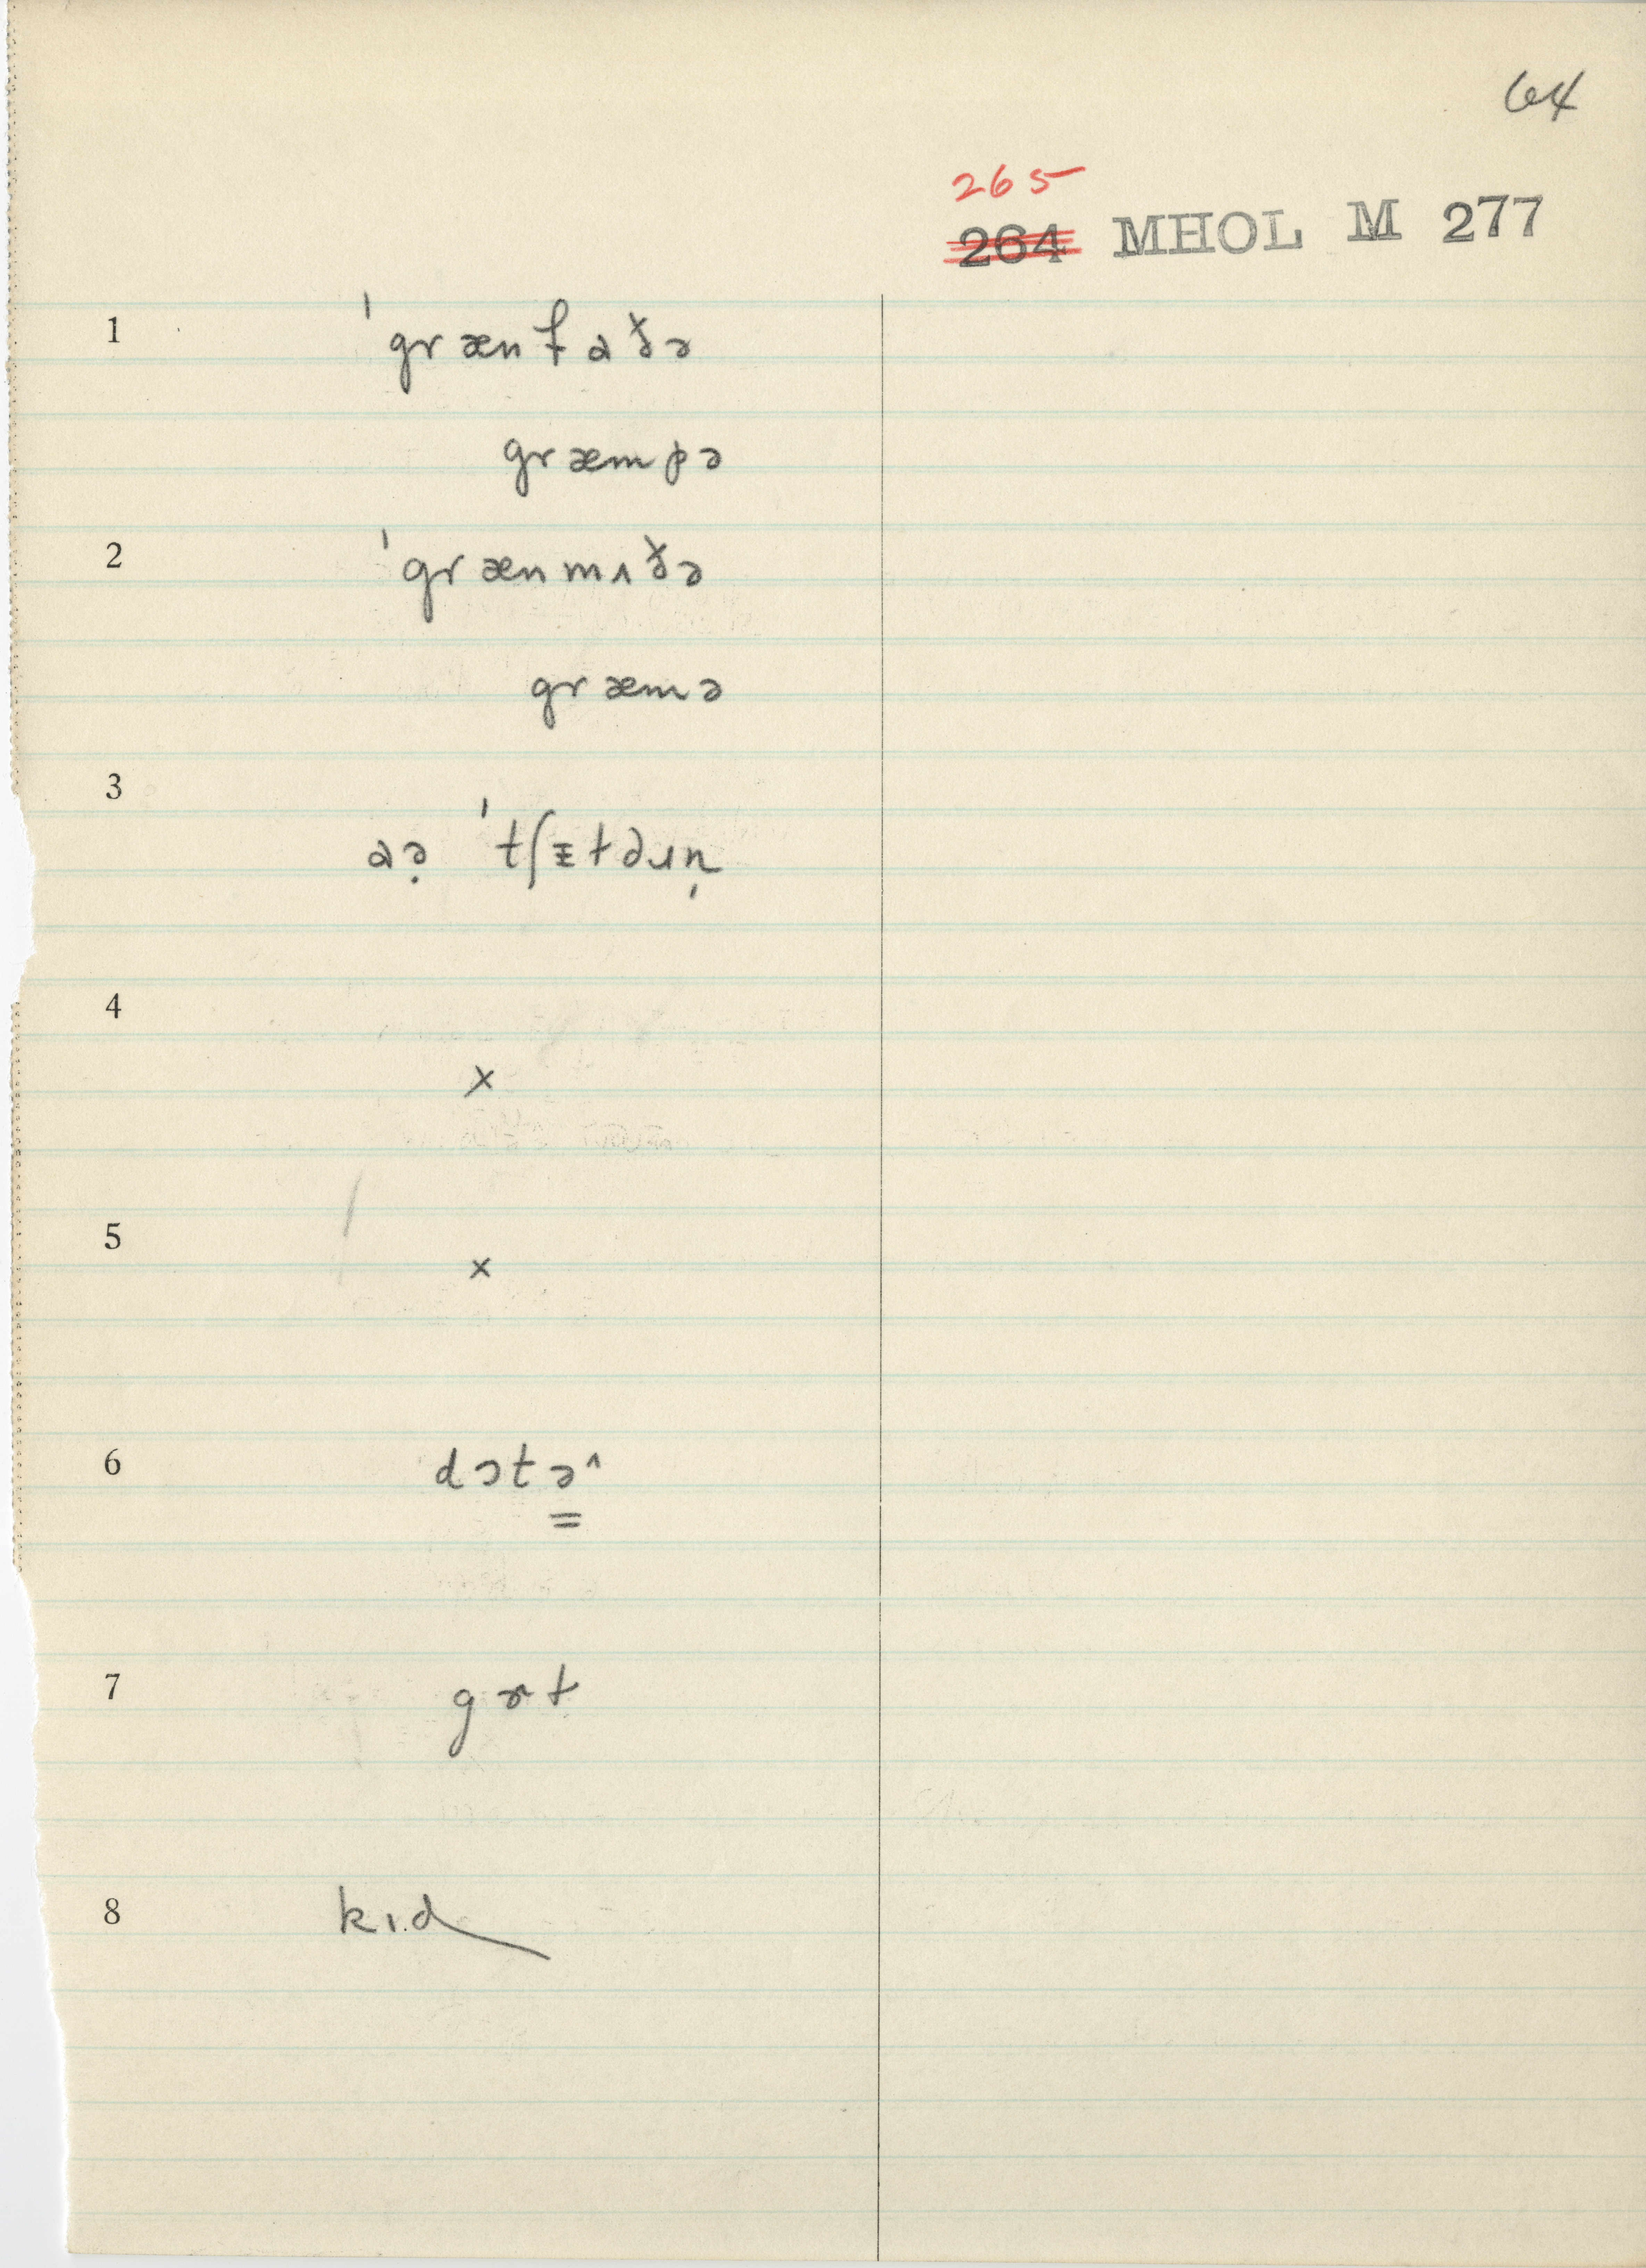 64
265
264 MHOL M 277
1 ˈgrænfaðə
græmpə
2 ˈgrænmʌðə
græmə
3
aə̣ ˈtʃɪtdɹɪn̩
4
×
5
×
6 dɔtə̳^
7 gɜt
8 kɪd